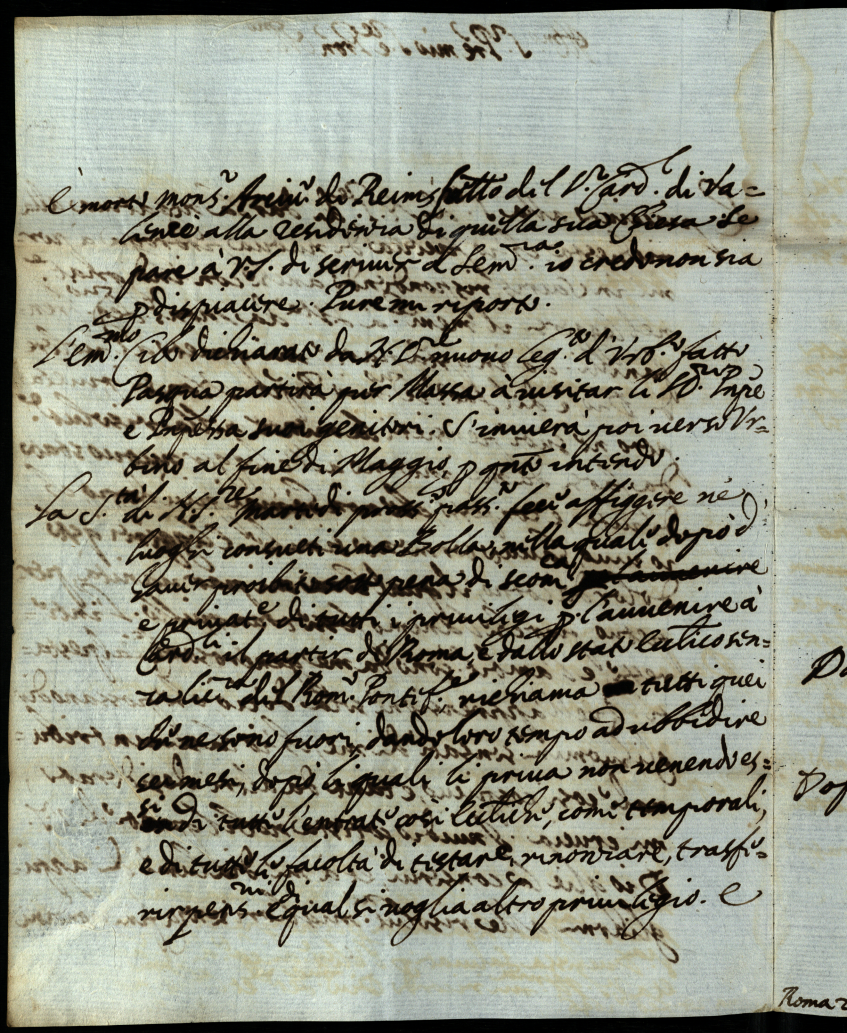 È morto mons.r Arciv.o di Reims fatto del S.r Card.l di Va=
lenzè alla residenza di quella sua Chiesa. Se
pare à V.S. di scriver à S. em.za io credo non sia
p dispiacere. Pure mi riporto.
L'em.mo Cibo dichiarato da N. S.re nuovo leg.to d'Urb.o fatto
Pasqua partirà per Massa à visitar li SS.ri Pnpe
e Pnpessa suoi genitori. S'invierà poi verso Ur=
bino al fine di Maggio, p qnto intendo.
La S.tà di N. S.re Martedì pross.o pass.o fece affiggere ne
luoghi consueti una Bolla, nella quale dopò d'
haver proibito sott pena di scom.ca per l'auuenire
e privat.e di tutti i privilegi p l'auuenire à
Card.li il partir di Roma, e dallo stato eccl.ico sen=
za lic.za del Rom.o Pontif.e richiama tutti quei
che ne sono fuori, dando loro tempo ad ubbidire
sei mesi, dopò li quali li priva non venendo es=
si di tutte l'entrate così eccl.iche, come temporali,
e di tutte le facoltà di testare, rinonziare, trasfe=
rir pens.ni, e di qual si voglia altro privilegio. e
Roma 2